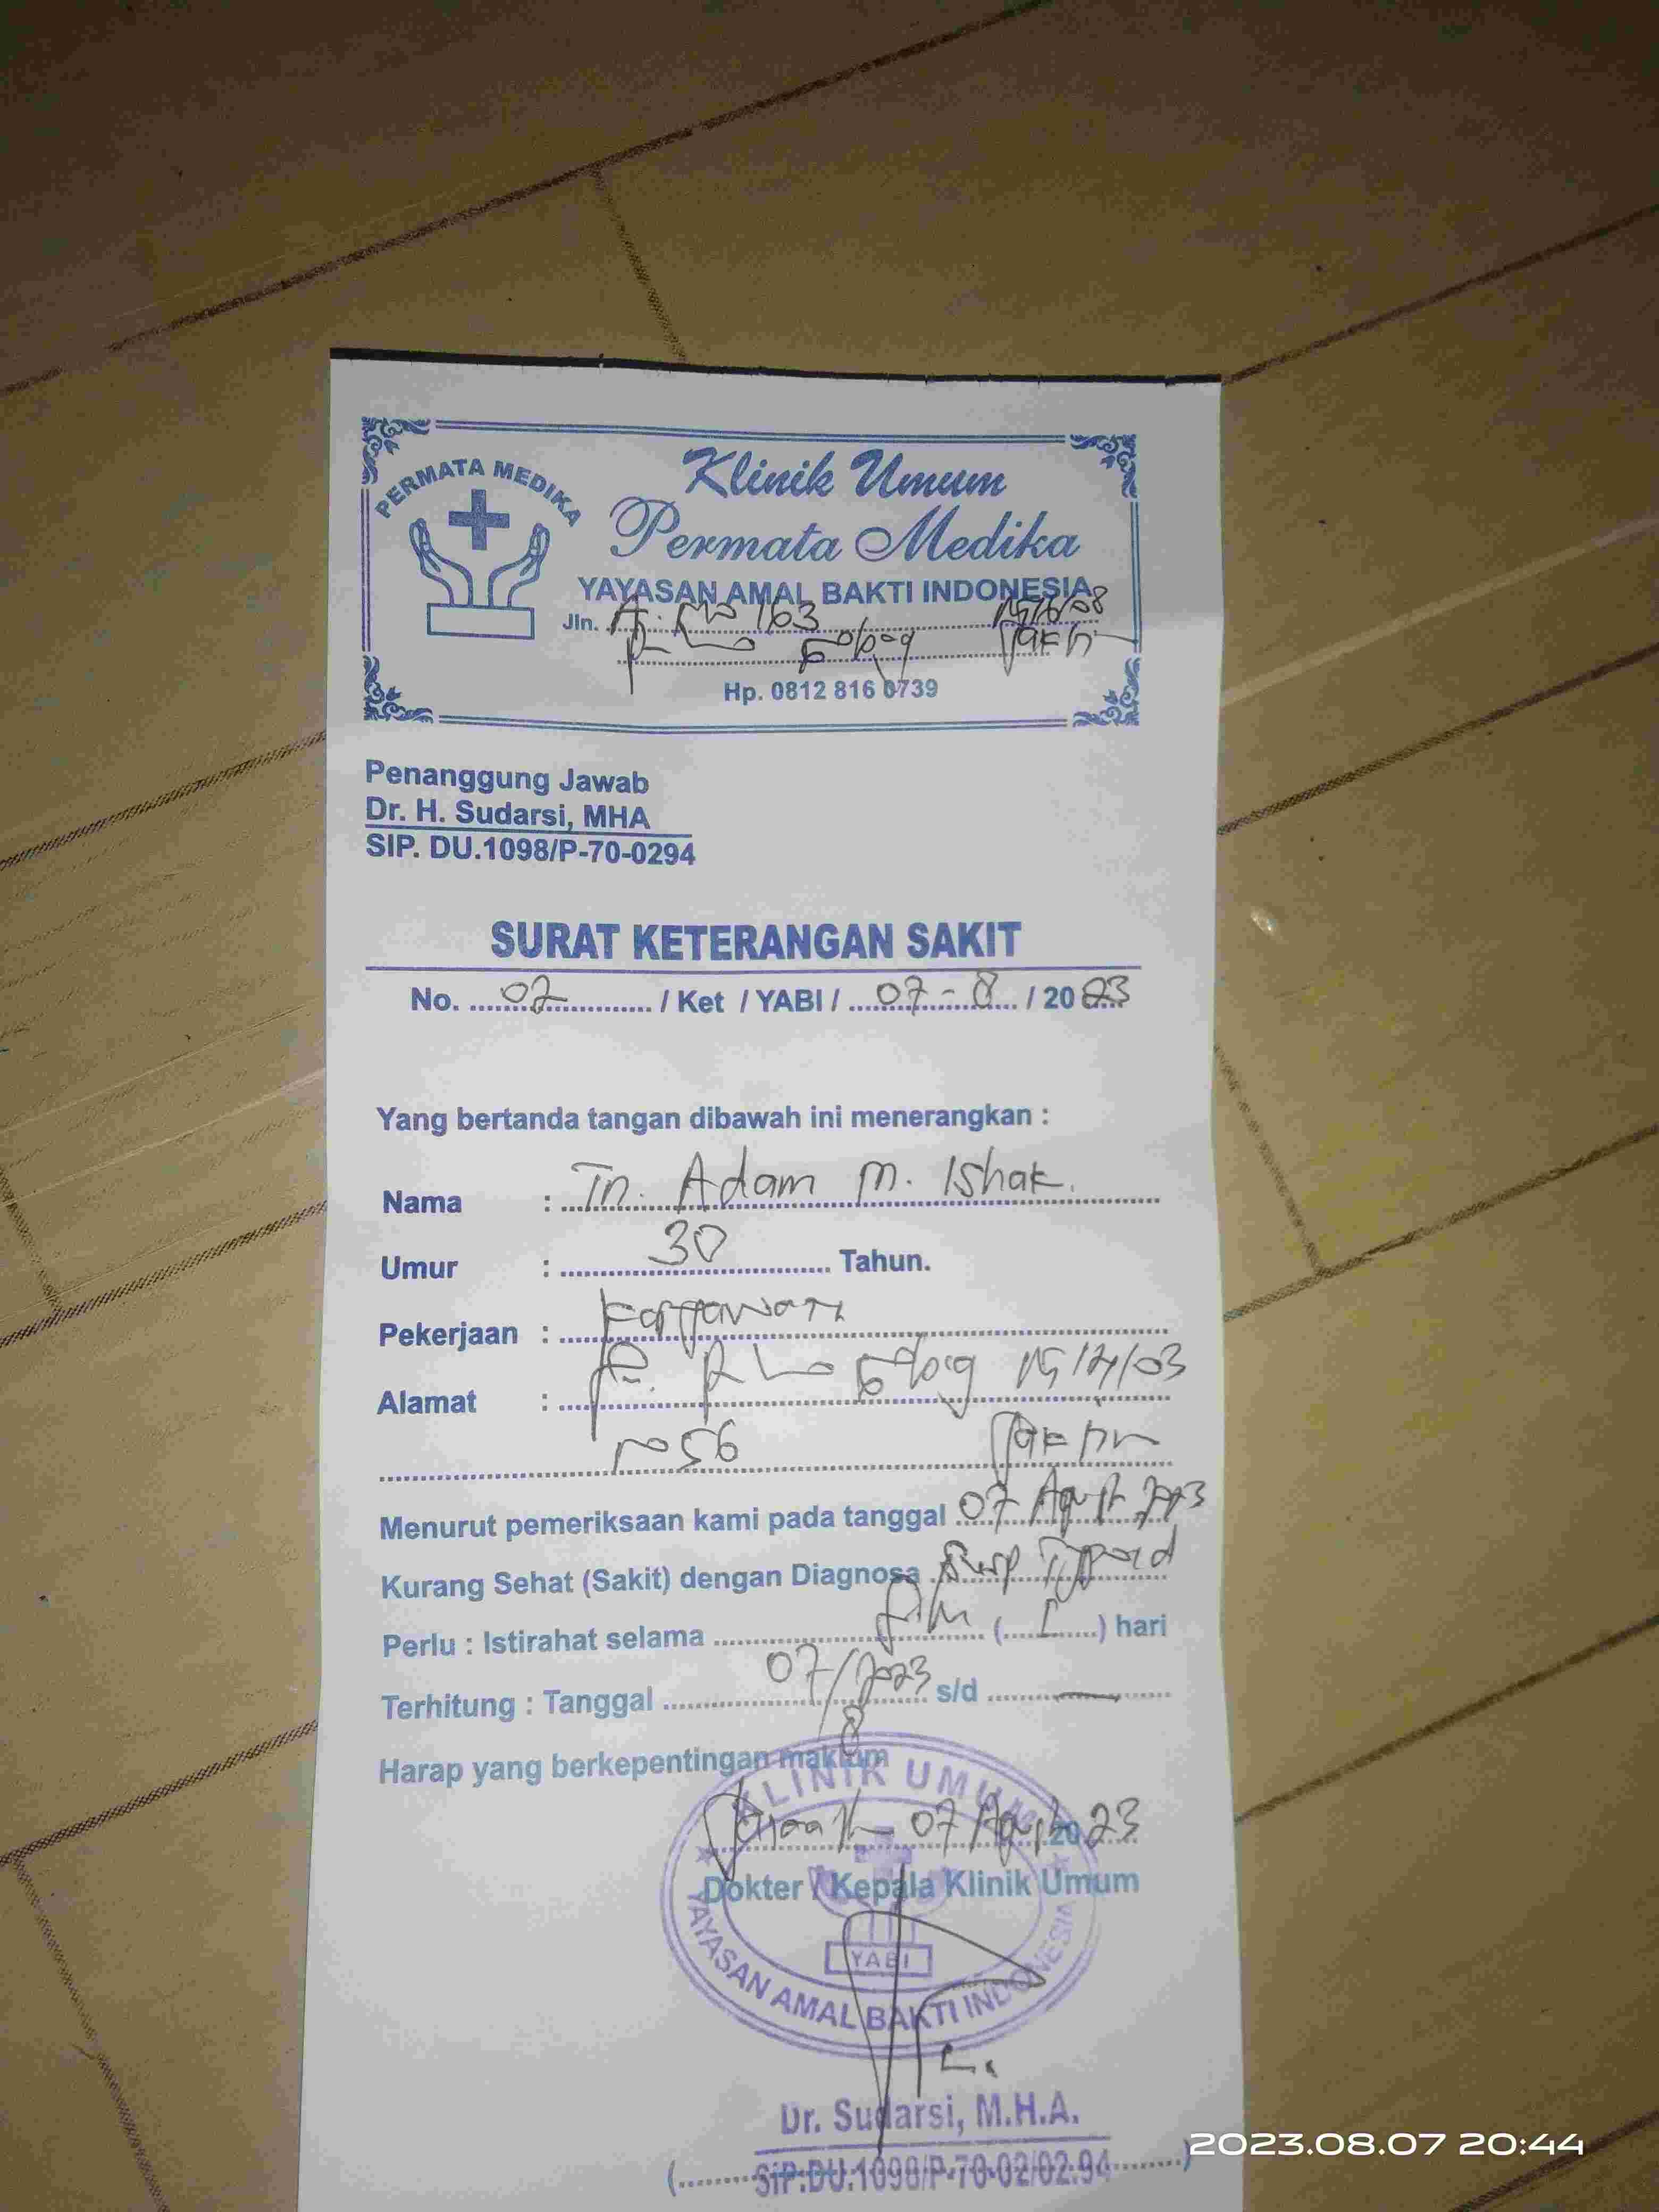 PERMATA MEDIKA
Klinik Umum
Permata Medika
YAYASAN AMAL BAKTI INDONESIA
Jln. 163
Hp. 0812 816 0739
Penanggung Jawab
Dr. H. Sudarsi, MHA
SIP. DU.1098/P-70-0294
SURAT KETERANGAN SAKIT
No. 07 / Ket / YABI / 07-8 / 2023
Yang bertanda tangan dibawah ini menerangkan :
Nama : Tn. Adam M. Ishak.
Umur : 30 Tahun.
Pekerjaan : Karyawan
Alamat :
no 56
Menurut pemeriksaan kami pada tanggal 07 Agust 2023
Kurang Sehat (Sakit) dengan Diagnosa Susp Typoid
Perlu : Istirahat selama (I) hari
Terhitung : Tanggal 07/8 2023 s/d —
Harap yang berkepentingan maklum
07 Agust 2023
Dokter / Kepala Klinik Umum
KLINIK UMUM
YABI
YAYASAN AMAL BAKTI INDONESIA
Dr. Sudarsi, M.H.A.
(SIP.DU.1098/P-70-02/02.94)
2023.08.07 20:44